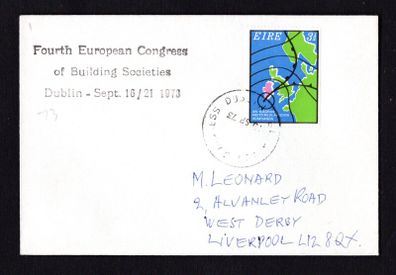 Fourth European Congress
of Building Societies
Dublin - Sept. 16/21 1973
ÉIRE 3½
73
M. LEONARD
2, ALVANLEY ROAD
WEST DERBY
LIVERPOOL L12 8QX.